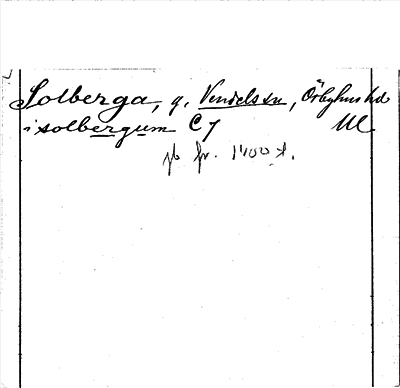 Solberga, g. Vendels sn, Örbyhus hd
i solbergum C7 Ul
pb fr. 1400 t.